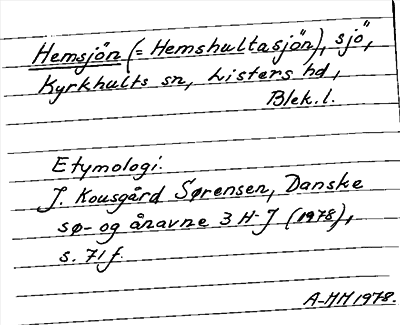 Hemsjön (= Hemshultasjön), sjö,
Kyrkhults sn, Listers hd,
Blek.l.
Etymologi:
J. Kousgård Sørensen, Danske
sø- og ånavne 3 H-J (1978),
s. 71 f.
A-MM 1978.